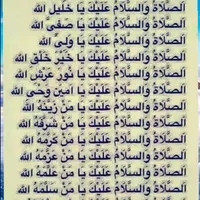 اَلصَّلَاةُ وَالسَّلَامُ عَلَيْكَ يَا خَلِيلَ اللهِ
اَلصَّلَاةُ وَالسَّلَامُ عَلَيْكَ يَا صَفِيَّ اللهِ
اَلصَّلَاةُ وَالسَّلَامُ عَلَيْكَ يَا وَلِيَّ اللهِ
اَلصَّلَاةُ وَالسَّلَامُ عَلَيْكَ يَا خَيْرَ خَلْقِ اللهِ
اَلصَّلَاةُ وَالسَّلَامُ عَلَيْكَ يَا نُورَ عَرْشِ اللهِ
اَلصَّلَاةُ وَالسَّلَامُ عَلَيْكَ يَا أَمِينَ وَحْيِ اللهِ
اَلصَّلَاةُ وَالسَّلَامُ عَلَيْكَ يَا مَنْ زَيَّنَهُ اللهُ
اَلصَّلَاةُ وَالسَّلَامُ عَلَيْكَ يَا مَنْ شَرَّفَهُ اللهُ
اَلصَّلَاةُ وَالسَّلَامُ عَلَيْكَ يَا مَنْ كَرَّمَهُ اللهُ
اَلصَّلَاةُ وَالسَّلَامُ عَلَيْكَ يَا مَنْ عَظَّمَهُ اللهُ
اَلصَّلَاةُ وَالسَّلَامُ عَلَيْكَ يَا مَنْ عَلَّمَهُ اللهُ
اَلصَّلَاةُ وَالسَّلَامُ عَلَيْكَ يَا مَنْ سَلَّمَهُ اللهُ